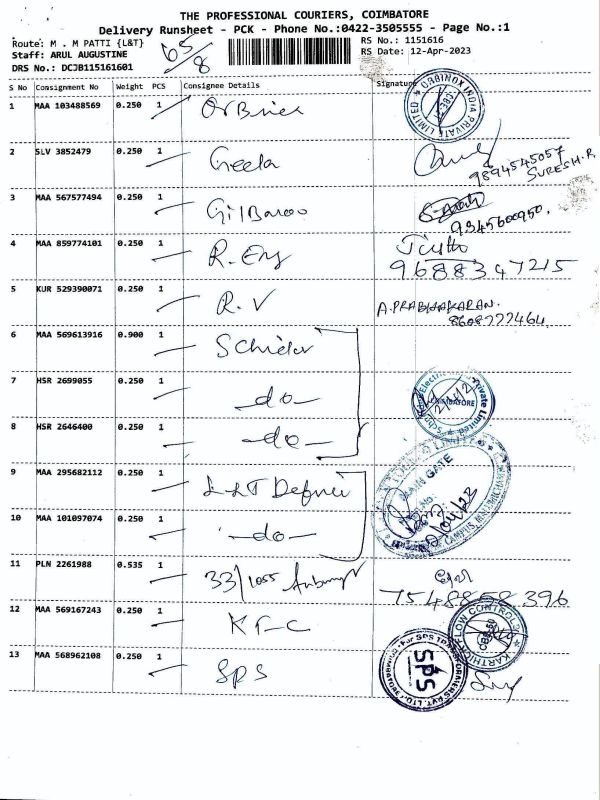 THE PROFESSIONAL COURIERS, COIMBATORE
Delivery Runsheet - PCK - Phone No.:0422-3505555 - Page No.:1
Route: M . M PATTI {L&T}
RS No.: 1151616
Staff: ARUL AUGUSTINE
RS Date: 12-Apr-2023
DRS No.: DCJB115161601
65/8
S No Consignment No Weight PCS Consignee Details Signature
1 MAA 103488569 0.250 1
ORBINOX INDIA PRIVATE LIMITED
2 SLV 3852479 0.250 1 Geeta
9894545057
SURESH.R
3 MAA 567577494 0.250 1 Gilbarco
9345600950.
4 MAA 859774101 0.250 1 R. Eng
9688347215
5 KUR 529390071 0.250 1 R.V
A.PRABHAKARAN.
8608722464
6 MAA 569613916 0.900 1
7 HSR 2699055 0.250 1 -do-
COIMBATORE
Private Limited
8 HSR 2646400 0.250 1 -do-
9 MAA 295682112 0.250 1 L&T Defence
MAIN GATE
10 MAA 101097074 0.250 1 -do-
CAMPUS,
11 PLN 2261988 0.535 1 33/1055
7548858396
12 MAA 569167243 0.250 1 KFC
KARTHICK FLOW CONTROLS
13 MAA 568962108 0.250 1 SPS
For SPS TRANSFORMERS PVT. LTD.
SPS